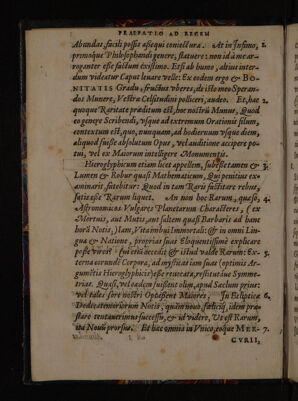 PRAEFATIO AD REGEM
Abundas, facilè possis assequi coniectura. At in Insimo, 2.
primoque Philosophandi genere, statuere: non id à me arroganter
esse factum existimo. Etsi ab humo, altius interdum
videatur Caput leuare velle: Ex eodem ergo & BONITATIS
Gradu, fructus vberes, ab isto meo Sperandos
Munere, Vestra Celsitudini polliceri, audeo. Et, hac 2.
quoque Raritate præditum est, hoc nostrū Munus, Quod
eo genere Scribendi, vsque ad extremum Orationis filum,
contextum est, quo, nunquam, ad hodiernum vsque diem,
aliquod fuisse absolutum Opus, vel auditione accipere potui,
vel ex Maiorum intelligere Monumentis.
Hieroglyphicum etiam licet appellem, subesse tamen & 3.
Lumen & Robur quasi Mathematicum, Qui penitius examinarit,
fatebitur: Quod in tam Raris factitare rebus,
satis esse Rarum liquet. An non hoc Rarum, quæso, 4.
Astronomicos Vulgares Planetarum Characteres, (ex
Mortuis, aut Mutis, aut saltem quasi Barbaris ad hanc
horā Notis,) Iam, Vita imbui Immortali: & in omni Lingua
& Natione, proprias suas Eloquentissimè explicare
posse vires? Cui etiā accedit & istud valde Rarum: Externa 5.
eorundē Corpora, ad mysticas iam suas (optimis Argumētis
Hieroglyphicis) esse reuocata, restitutáue Symmetrias.
Quasi, vel eadem fuissent olim, apud Sæclum prius:
vel tales fore nostri Optassent Maiores. In Eclipticæ 6.
Dodecatemoriorum Notis, quàm nouo, fœlicíq́; idem præstare
tentauerimus successu, & id videre, Vt est Rarum,
ita Nouū prorsus. Et hæc omnia in Vnico, eoque MER- 7.
CVRII,